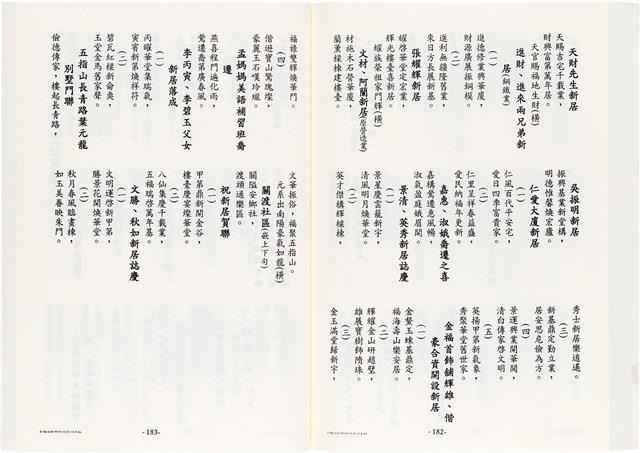 天財先生新居
天賜吉宅千載旺，
財興富第萬年居。
天官賜福地生財(橫)
進財、進來兩兄弟新
居(銅鐵業)
進德修業興華廈，
財源廣展振銅模。
(二)
進利無疆隆舊業，
來日方長展新基。
張耀輝新居
耀啓華堂定宏業，
輝光樓臺喜新居。
耀族榮祖家門輝(橫)
文材、阿蘭新居(原營造業)
材施木石營華廈，
蘭薰樑棟建樓臺。
吳振明新居
振興基業新堂構，
明德惟馨煥宏廬。
仁愛大廈新居
仁風百代平安宅，
愛日四季富貴家。
(二)
仁里呈祥春益盛，
愛民納福年更新。
嘉惠、淑娥喬遷之喜
嘉構鶯遷惠風暢，
淑氣盈庭娥眉開。
景清、英秀新居誌慶
(一)
景星慶雲龍新宇，
清風明月煥華堂。
(二)
英才傑構輝樑棟，
秀士新居樂逍遙。
(三)
新基鼎定勤立業，
居安思危儉為方。
(四)
景運興業開華閣，
清白傳家啓文明。
(五)
英揚甲第新氣象，
秀聚華堂舊世家。
金福首飾舖輝雄、偕
豪合資開設新居
(一)
金鰲玉蝀基鼎定，
福海壽山樂安居。
(二)
輝耀金山研趙璧，
雄展寶樹飾隋珠。
(三)
金玉滿堂歸新宇，
-182-
福祿雙輝煥華門。
(四)
偕遊寶山驚瑰燦，
豪麗玉石嘆玲瓏。
孟媽媽美語補習班喬
遷
燕喜程門遍化雨，
鶯遷喬第廣春風。
李丙寅、李碧玉父女
新居落成
(一)
丙曜華堂集瑞氣，
寅賓新第煥祥符。
(二)
碧瓦紅樑新侖奐，
玉堂金馬舊家聲。
五指山長青路葉元龍
別墅門聯
儉德傳家，樓起長青路，
文華振俗，福聚五指山。
元系出南陽豪氣如龍(橫)
關渡社區(嵌上下句)
關隘安鄉社，
渡頭通樂區。
祝新居賀聯
(一)
甲第鼎新開金谷，
樓臺慶宴燦華堂。
(二)
八仙集慶千載業，
五福瑞啟萬年基。
文勝、秋如新居誌慶
(一)
文明運啓新甲第，
勝景花開煥華堂。
(二)
秋月春風臨畫棟，
如玉美眷映朱門。
-183-